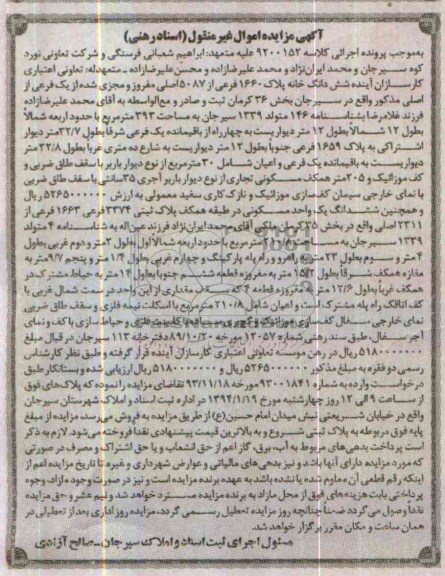 آگهی مزایده اموال غیر منقول (اسناد رهنی)
به‌موجب پرونده اجرائی کلاسه ۹۲۰۰۱۵۲ علیه متعهد: ابراهیم شعبانی فرسنگی و شرکت تعاونی نورد
کوه سیرجان و محمد ایران‌نژاد و محمد علیرضازاده و محسن علیرضازاده ـ متعهدله: تعاونی اعتباری
کارسازان آینده شش دانگ خانه پلاک ۱۶۶۰ فرعی از ۵۰۸۷ اصلی مفروز و مجزی شده از یک فرعی از
اصلی مذکور واقع در سیرجان بخش ۳۶ کرمان ثبت و صادر و مع‌الواسطه به آقای محمد علیرضازاده
فرزند غلامرضا بشناسنامه ۱۴۶ متولد ۱۳۳۹ سیرجان به مساحت ۳۹۳ مترمربع با حدود اربعه شمالاً
بطول ۱۲ شمالاً بطول ۱۲ متر دیواریست به چهارراه از باقیمانده یک فرعی شرقاً بطول ۳۲/۷ متر دیوار
اشتراکی به پلاک ۱۶۵۹ فرعی جنوباً بطول ۱۲ متر دیواریست به شارع ده متری غرباً بطول ۳۲/۸ متر
دیواریست به باقیمانده یک فرعی و اعیان شامل ۳۰ مترمربع از نوع دیوار باربر با سقف طاق ضربی و
کف موزائیک و ۲۰۵ متر همکف مسکونی تجاری از نوع دیوار باربر آجری ۳۵ سانتی با سقف طاق ضربی
با نمای خارجی سیمان کف‌سازی موزائیک و نازک کاری سفید معمولی به ارزش ۵۲۶۵۰۰۰۰۰۰ ریال
و همچنین ششدانگ یک واحد مسکونی در طبقه همکف پلاک ثبتی ۳۳۷۴ فرعی ۱۶۶۳ فرعی از
۲۳۱۱ اصلی واقع در بخش ۳۵ کرمان ملکی آقای محمد ایران‌نژاد فرزند عین‌اله به شناسنامه ۴ متولد
۱۳۳۹ سیرجان به مساحت مترمربع با حدود اربعه شمالاً اول بطول ۲ متر و دوم غربی بطول
۴ متر و سوم بطول ۲۳ متر به راهرو و راه پله پارکینگ و چهارم غربی بطول ۱/۴ متر و پنجم ۹/۷ متر به
مغازه همکف شرقاً بطول ۱۵/۲ متر به مفروزه قطعه ششم جنوباً بطول ۱۴ متر به حیاط مشترک در
همکف غرباً بطول ۱۲/۶ متر به مفروزه قطعه ۴ که سقف مقداری از این واحد در سمت شمال غربی با
کف اتاقک راه پله مشترک است و اعیان شامل ۲۱۰/۸ مترمربع با اسکلت نیمه فلزی و سقف طاق ضربی
نمای خارجی سفال کف‌سازی موزائیک و حیاط سازی با کف و نمای
آجر سفال. طبق سند رهنی شماره ۱۲۰۵۷ مورخه ۸۹/۱۰/۲۰ دفترخانه ۱۱۳ سیرجان در قبال مبلغ
۵۱۸۰۰۰۰۰۰۰ ریال در رهن موسسه تعاونی اعتباری کارسازان آینده قرار گرفته و طبق نظر کارشناس
رسمی دو فقره به مبلغ مذکور ۵۲۶۵۰۰۰۰۰۰ ریال و ۵۱۸۰۰۰۰۰۰۰ ریال ارزیابی شده و بستانکار طبق
درخواست وارده به شماره ۹۳۰۰۱۸۴۱ مورخه ۹۳/۱۱/۱۸ تقاضای مزایده را نموده که پلاک‌های فوق
از ساعت ۹ الی ۱۲ روز چهارشنبه مورخ ۱۳۹۴/۱/۱۹ در اداره ثبت اسناد و املاک شهرستان سیرجان
واقع در خیابان شریعتی نبش میدان امام حسین (ع) از طریق مزایده به فروش می‌رسد. مزایده از مبلغ
پایه فوق مربوطه به پلاک ثبتی شروع و به بالاترین قیمت پیشنهادی نقداً فروخته می‌شود. لازم به ذکر
است پرداخت بدهی‌های مربوط به آب، برق، گاز اعم از حق انشعاب و یا حق اشتراک و مصرف در صورتی
که مورد مزایده دارای آنها باشد و نیز بدهی‌های مالیاتی و عوارض شهرداری و غیره تا تاریخ مزایده اعم از
اینکه رقم قطعی آن معلوم شده یا نشده باشد به عهده برنده مزایده است و نیز در صورت وجود مازاد، وجوه
پرداختی بابت هزینه‌های فوق از محل مازاد به برنده مزایده مسترد خواهد شد و نیم عشر و حق مزایده
نقداً وصول می‌گردد ضمناً چنانچه روز مزایده تعطیل رسمی گردد، مزایده روز اداری بعد از تعطیلی در
همان ساعت و مکان مقرر برگزار خواهد شد.
مسئول اجرای ثبت اسناد و املاک سیرجان ـ صالح آزادی